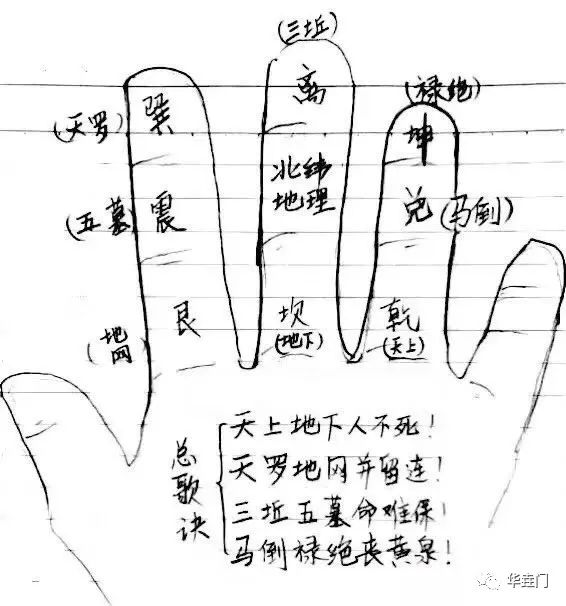 (三坵)
离
(禄绝)
坤
(天罗)
巽
北纬
地理
(五墓)
震
兑
(马倒)
艮
坎
(地下)
乾
(天上)
(地网)
总歌诀
天上地下人不死!
天罗地网并留连!
三坵五墓命难保!
马倒禄绝丧黄泉!